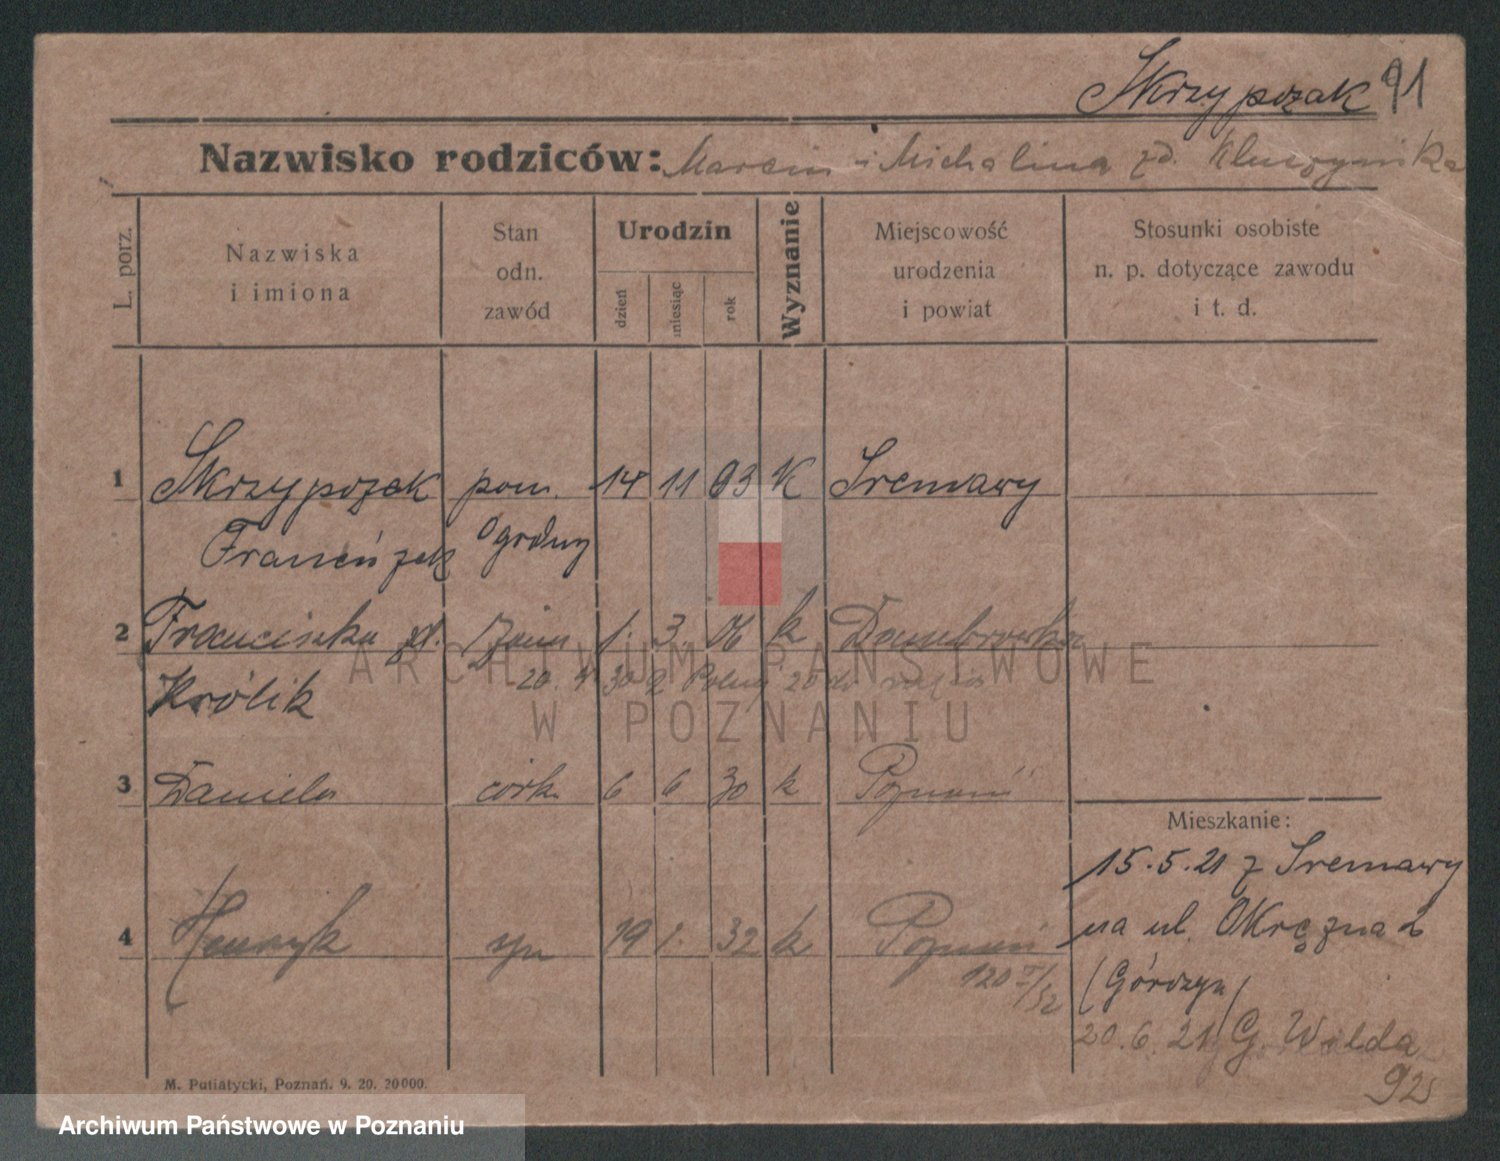 Skrzypczak 91
Nazwisko rodziców: Marcin i Michalina zd.
L. porz.
Nazwiska
i imiona
Stan
odn.
zawód
Urodzin
dzień
miesiąc
rok
Wyznanie
Miejscowość
urodzenia
i powiat
Stosunki osobiste
n. p. dotyczące zawodu
i t. d.
1 Skrzypczak pom. 14 11 03 K Sremawy
Franciszek ogrdwy
2 Franciszka zd. żona 1. 3. 06 k Dombrowka
Królik 20. 4 30 z Polnej 20 do
3 Daniela córka 6 6 30 k Poznań
Mieszkanie:
15.5.21 z Sremawy
na ul. Okrężna 2
(Górczyn)
20.6.21 G. Wilda
92
4 Henryk syn 19 1. 32 k Poznań
120 I/32
M. Putiatycki, Poznań. 9. 20. 20000.
ARCHIWUM PAŃSTWOWE
W POZNANIU
Archiwum Państwowe w Poznaniu